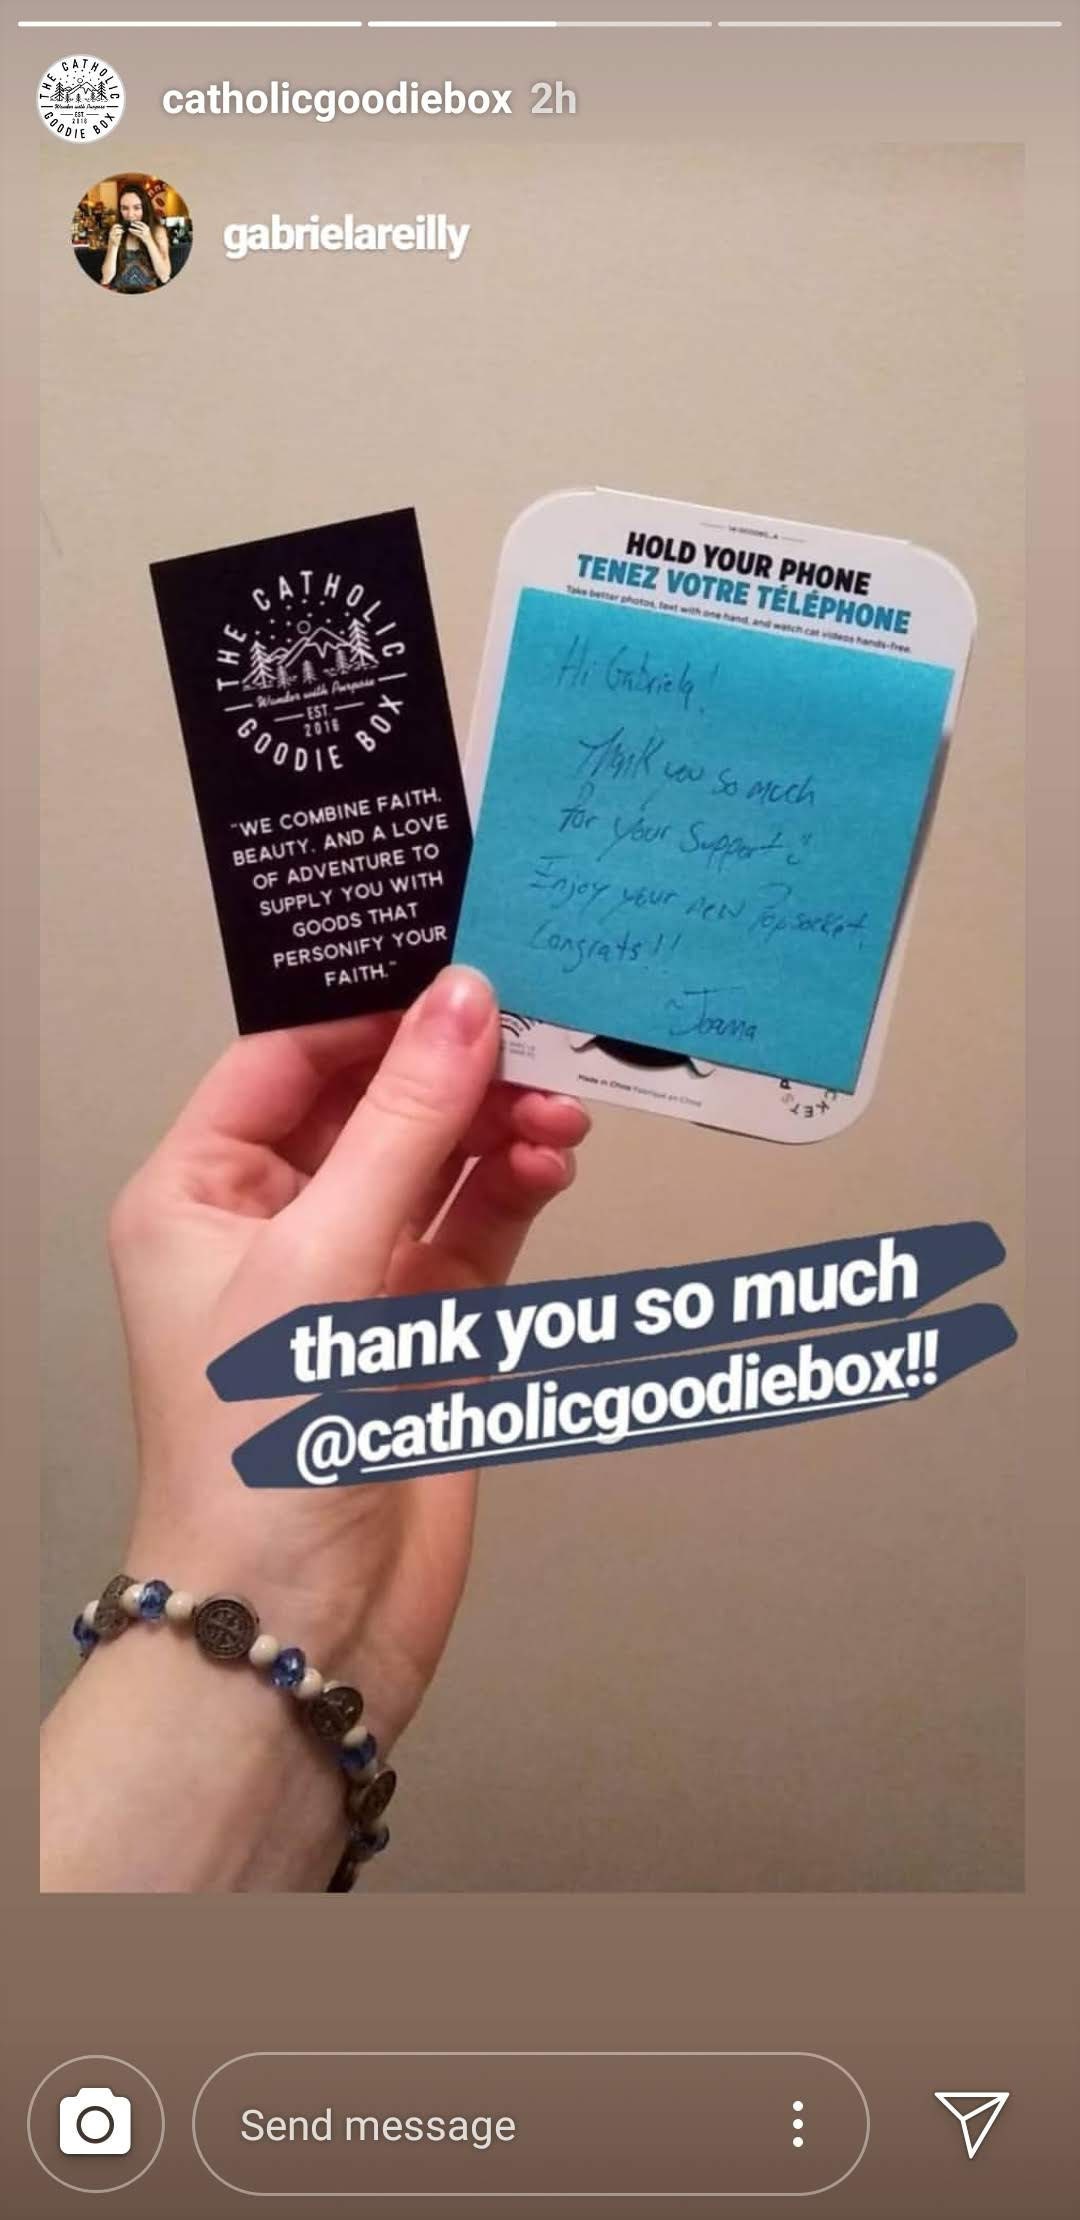 THE CATHOLIC
Wander with Purpose
EST.
2016
GOODIE BOX
catholicgoodiebox 2h
gabrielareilly
THE CATHOLIC
Wander with Purpose
EST.
2016
GOODIE BOX
"WE COMBINE FAITH,
BEAUTY, AND A LOVE
OF ADVENTURE TO
SUPPLY YOU WITH
GOODS THAT
PERSONIFY YOUR
FAITH."
HOLD YOUR PHONE
TENEZ VOTRE TÉLÉPHONE
Take better photos, text with one hand, and watch cat videos hands-free.
Hi Gabriela!
Thank you so much
for your support
Enjoy your new Popsocket,
Congrats!!
~Joanna
Made in China Fabriqué en Chine
thank you so much
@catholicgoodiebox!!
Send message